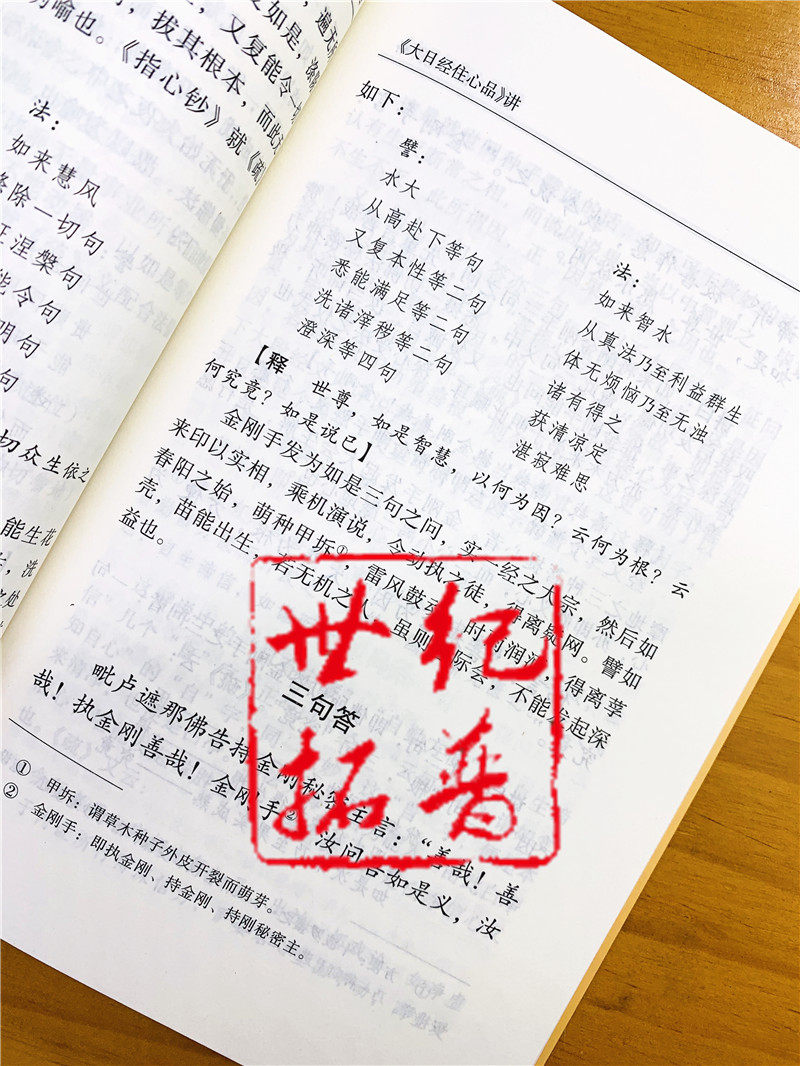 为喻也。《指心钞》就《疏
拔其根本，而此
又复能令一切
如是，
遍
法：
如来慧风
除一切句
涅槃句
能令句
明句
句
切众生依之
能生花
洗
之处
《大日经住心品》讲
如下：
譬：
水大
从高赴下等句
又复本性等二句
悉能满足等二句
洗诸滓秽等二句
澄深等四句
法：
如来智水
从真法乃至利益群生
体无烦恼乃至无浊
诸有得之
获清凉定
湛寂难思
【释 世尊，如是智慧，以何为因？云何为根？云
何究竟？如是说已】
金刚手发为如是三句之问，实一经之大宗，然后如
来印以实相，乘机演说，令动执之徒，得离疑网。譬如
春阳之始，萌种甲坼①，雷风鼓动，时雨润泽，得离孚
壳，苗能出生，若无机之人，虽则际会，不能发起深
益也。
三句答
毗卢遮那佛告持金刚秘密主言：“善哉！善
哉！执金刚善哉！金刚手②，汝问吾如是义，汝
① 甲坼：谓草木种子外皮开裂而萌芽。
② 金刚手：即执金刚、持金刚、持刚秘密主。
世纪
拓普